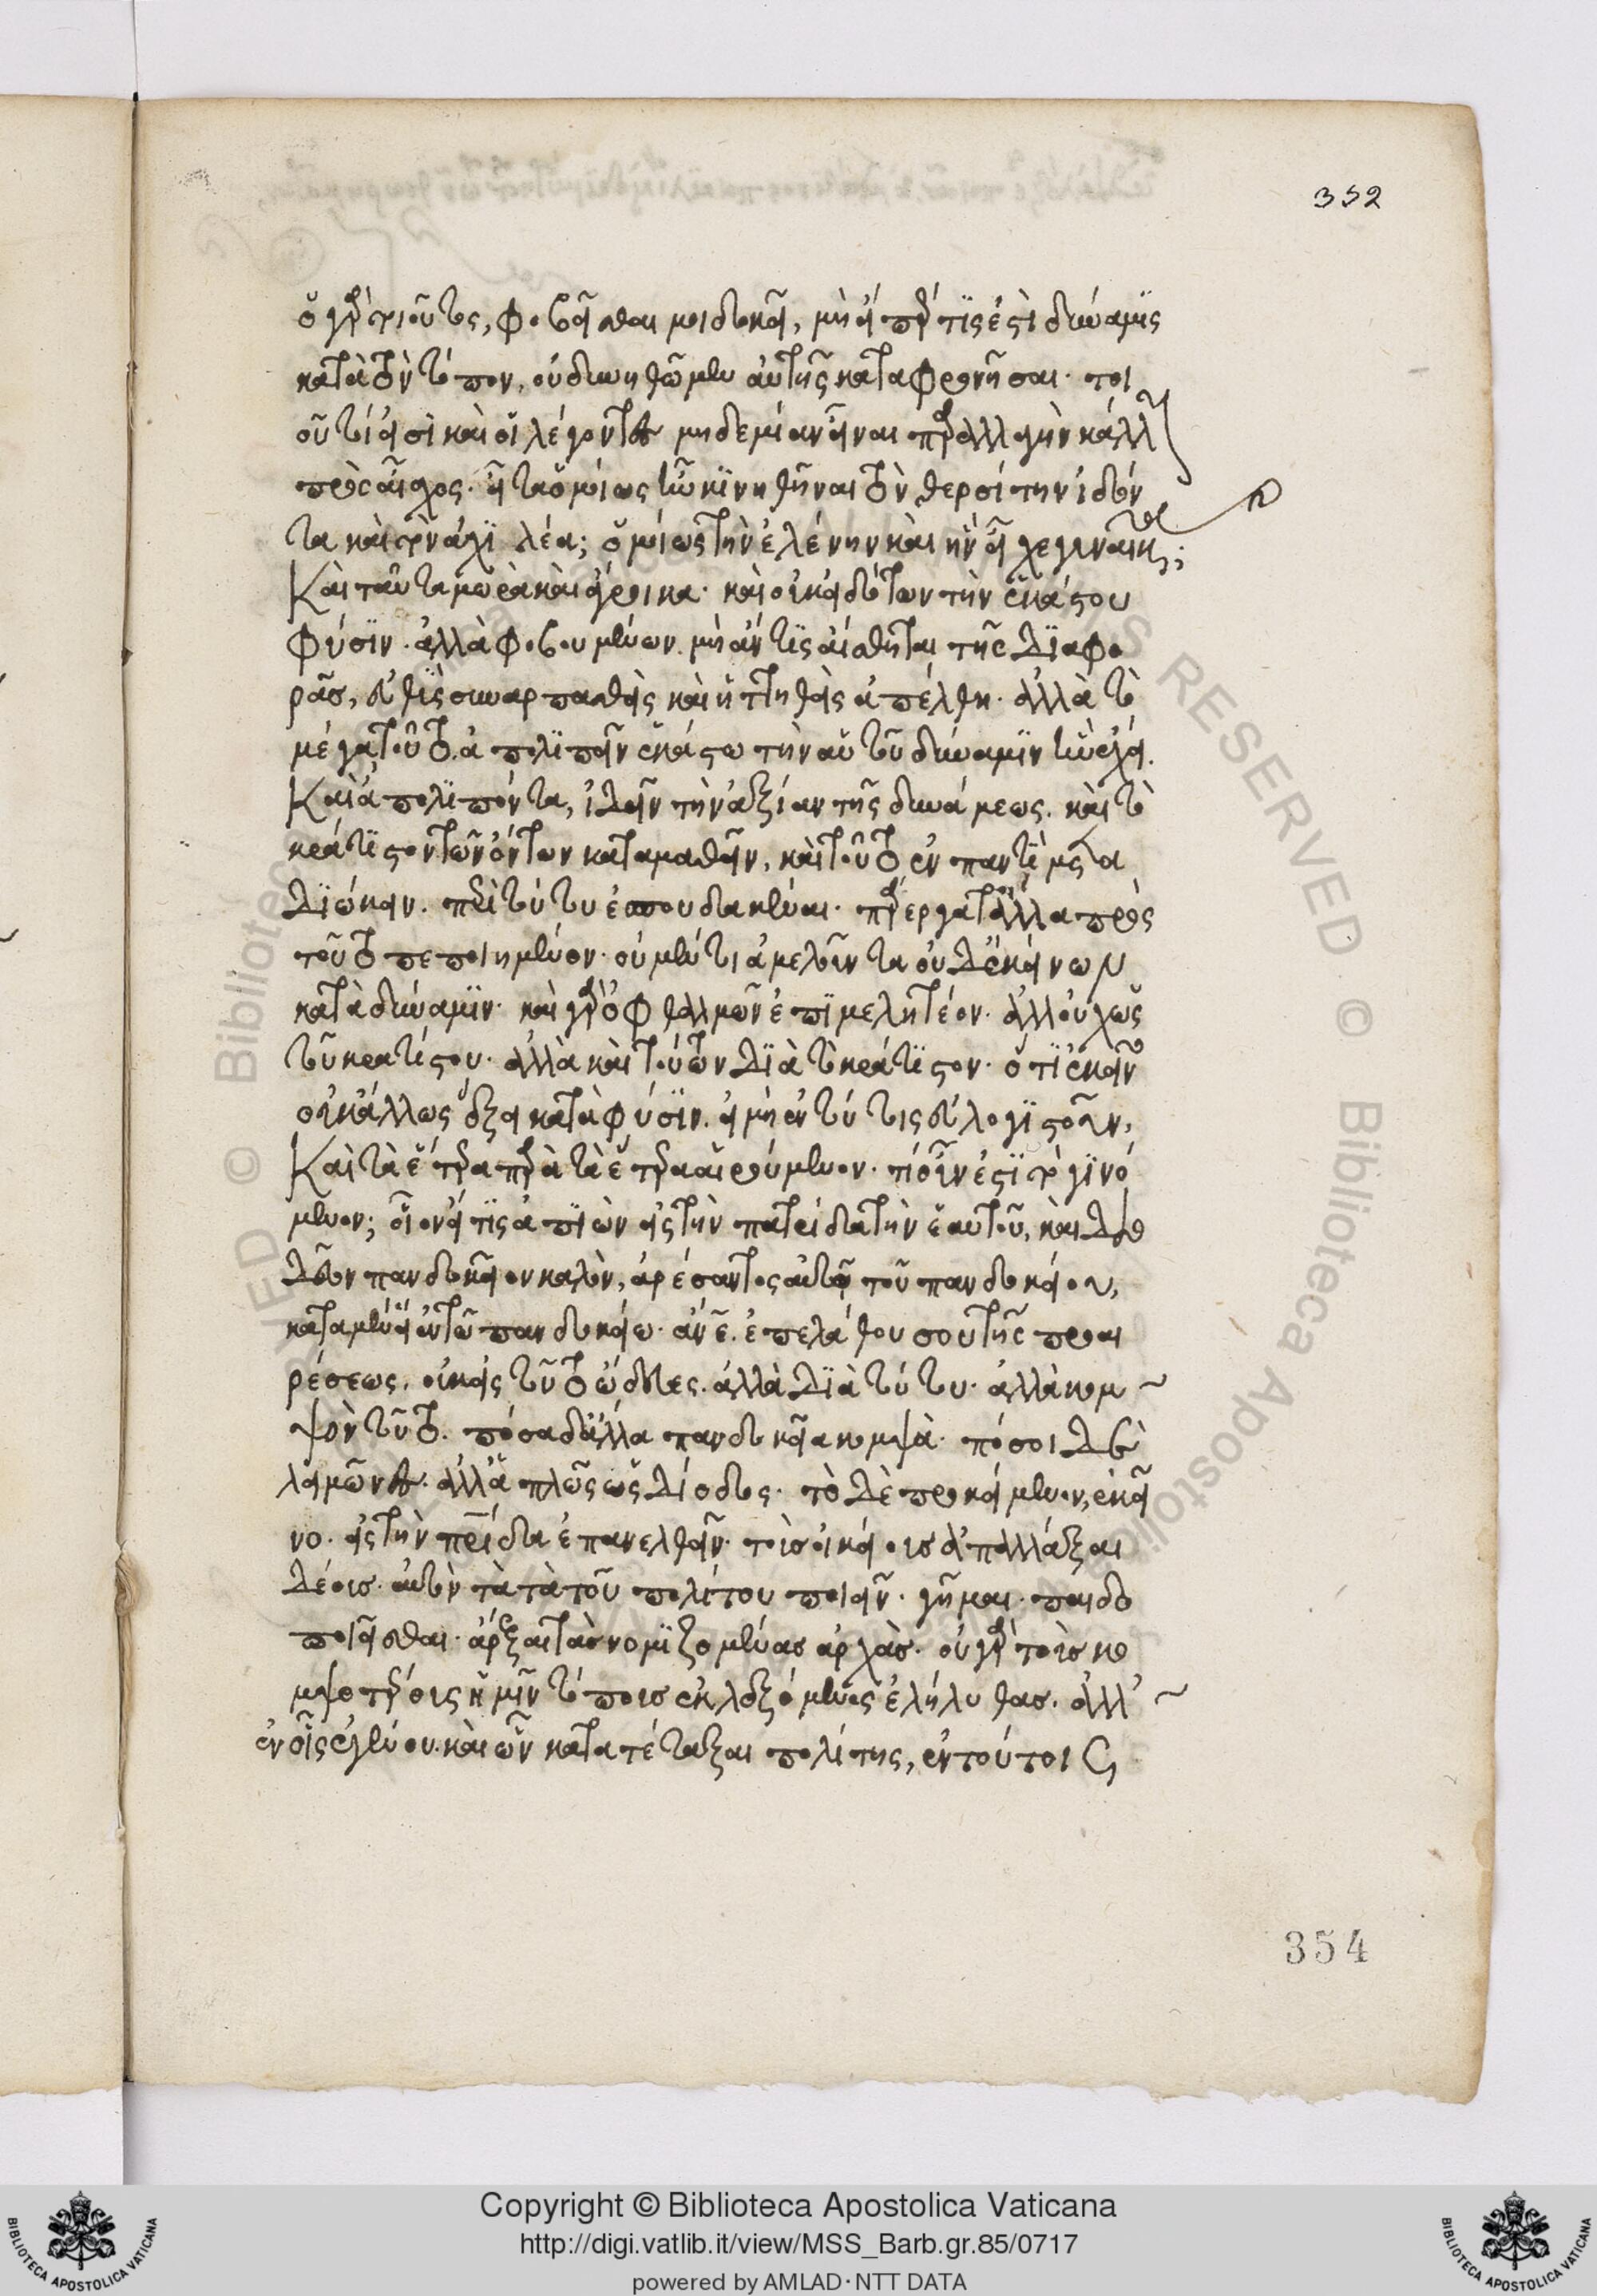 352
ὁ γὰρ τοιοῦτος, φοβεῖσθαί μοι δοκεῖ, μὴ εἴπερ τίς ἐστι δύναμις
κατὰ τὸν τόπον, οὐ δυνηθῶμεν αὐτῆς καταφρονῆσαι. τοι
οῦτοί εἰσι καὶ οἱ λέγοντες μηδεμίαν εἶναι παραλλαγὴν κάλλους
πρὸς αἶσχος. εἶτα ὁμοίως ἦν κινηθῆναι τὸν θερσίτην ἰδόν
τα καὶ τὸν ἀχιλλέα; ὁμοίως τὴν ἑλένην καὶ ἣν εἶχε γυναῖκα;
Καὶ ταῦτα μωρὰ καὶ ἄγροικα. καὶ οὐκ εἰδότων τὴν ἑκάστου
φύσιν. ἀλλὰ φοβουμένων. μὴ ἄν τις αἴσθηται τῆς διαφο
ρᾶς, εὐθὺς συναρπασθεὶς καὶ ἡττηθεὶς ἀπέλθη. ἀλλὰ τὸ
μέγα τοῦτο. ἀπολιπεῖν ἑκάστω τὴν αὑτοῦ δύναμιν ἣν ἔχει.
Καὶ ἀπολιπόντα, ἰδεῖν τὴν ἀξίαν τῆς δυνάμεως. καὶ τὸ
κράτιστον τῶν ὄντων καταμαθεῖν, καὶ τοῦτο ἐν παντὶ μετα
διώκειν. περὶ τοῦτο ἐσπουδακέναι. πάρεργα τἆλλα πρὸς
τοῦτο πεποιημένον. οὐ μέντοι ἀμελοῦντα οὐδ' ἐκείνων
κατὰ δύναμιν. καὶ γὰρ ὀφθαλμῶν ἐπιμελητέον. ἀλλ' οὐχ ὡς
τοῦ κρατίστου. ἀλλὰ καὶ τούτων διὰ τὸ κράτιστον. ὅτι ἐκεῖνο
οὐκ ἄλλως ἕξει κατὰ φύσιν. εἰ μὴ ἐν τούτοις εὐλογιστοῦν,
Καὶ τὰ ἕτερα παρὰ τὰ ἕτερα αἱρούμενον. τί οὖν ἐστι τὸ γινό
μενον; οἷον εἴ τις ἀπιὼν εἰς τὴν πατρίδα τὴν ἑαυτοῦ, καὶ διο
δεύων πανδοκεῖον καλὸν, ἀρέσαντος αὐτῷ τοῦ πανδοκείου,
καταμένει ἐν τῶ πανδοκείω. ἄνε. ἐπελάθου σου τῆς προαι
ρέσεως. οὐκ εἰς τοῦτο ὥδευες. ἀλλὰ διὰ τούτου. ἀλλὰ κομ
ψὸν τοῦτο. πόσα δ' ἄλλα πανδοκεῖα κομψὰ. πόσοι δὲ
λειμῶνες. ἀλλ' ἁπλῶς ὡς δίοδος. τὸ δὲ προκείμενον, ἐκεῖ
νο. εἰς τὴν πατρίδα ἐπανελθεῖν. τοὺς οἰκείους ἀπαλλάξαι
δέους. αὐτὸν τὰ τοῦ πολίτου ποιεῖν. γῆμαι. παιδο
ποιεῖσθαι. ἄρξαι τὰς νομιζομένας ἀρχὰς. οὐ γὰρ τοὺς κο
μψοτέρους ἡμῖν τόπους ἐκλεξόμενος ἐλήλυθας. ἀλλ'
ἐν οἷς ἐγένου. καὶ ὧν κατατέταξαι πολίτης, ἐν τούτοις
354
Copyright © Biblioteca Apostolica Vaticana
http://digi.vatlib.it/view/MSS_Barb.gr.85/0717
powered by AMLAD·NTT DATA